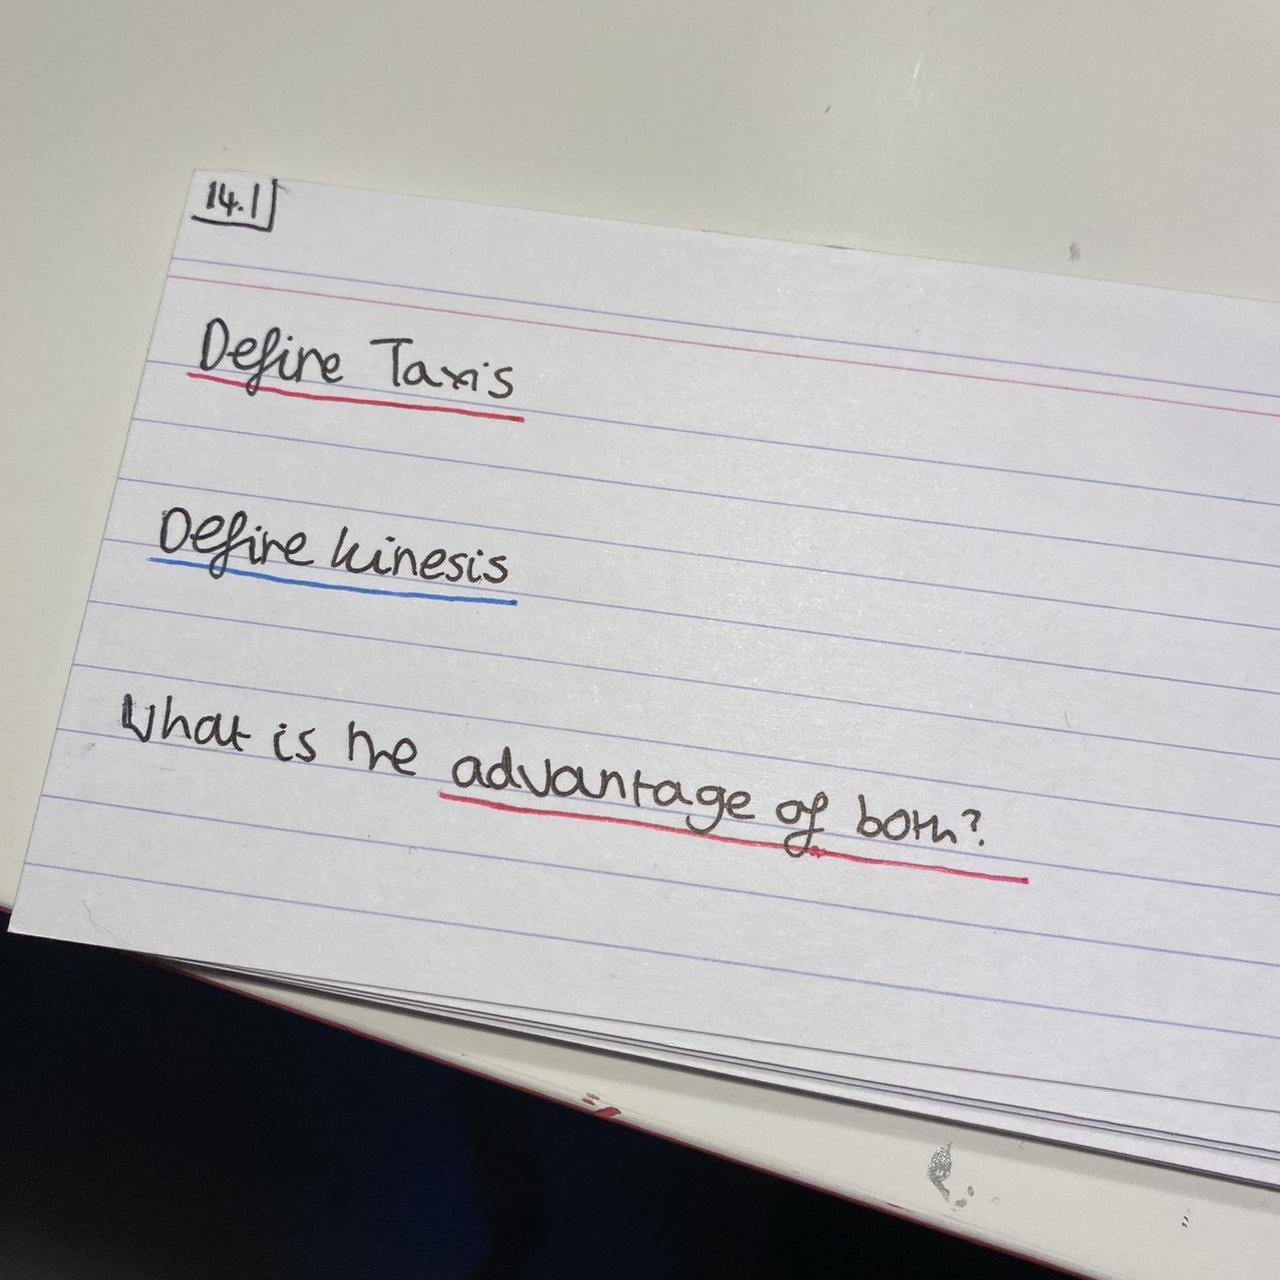 14.1
Define Taxis
Define kinesis
What is the advantage of both?